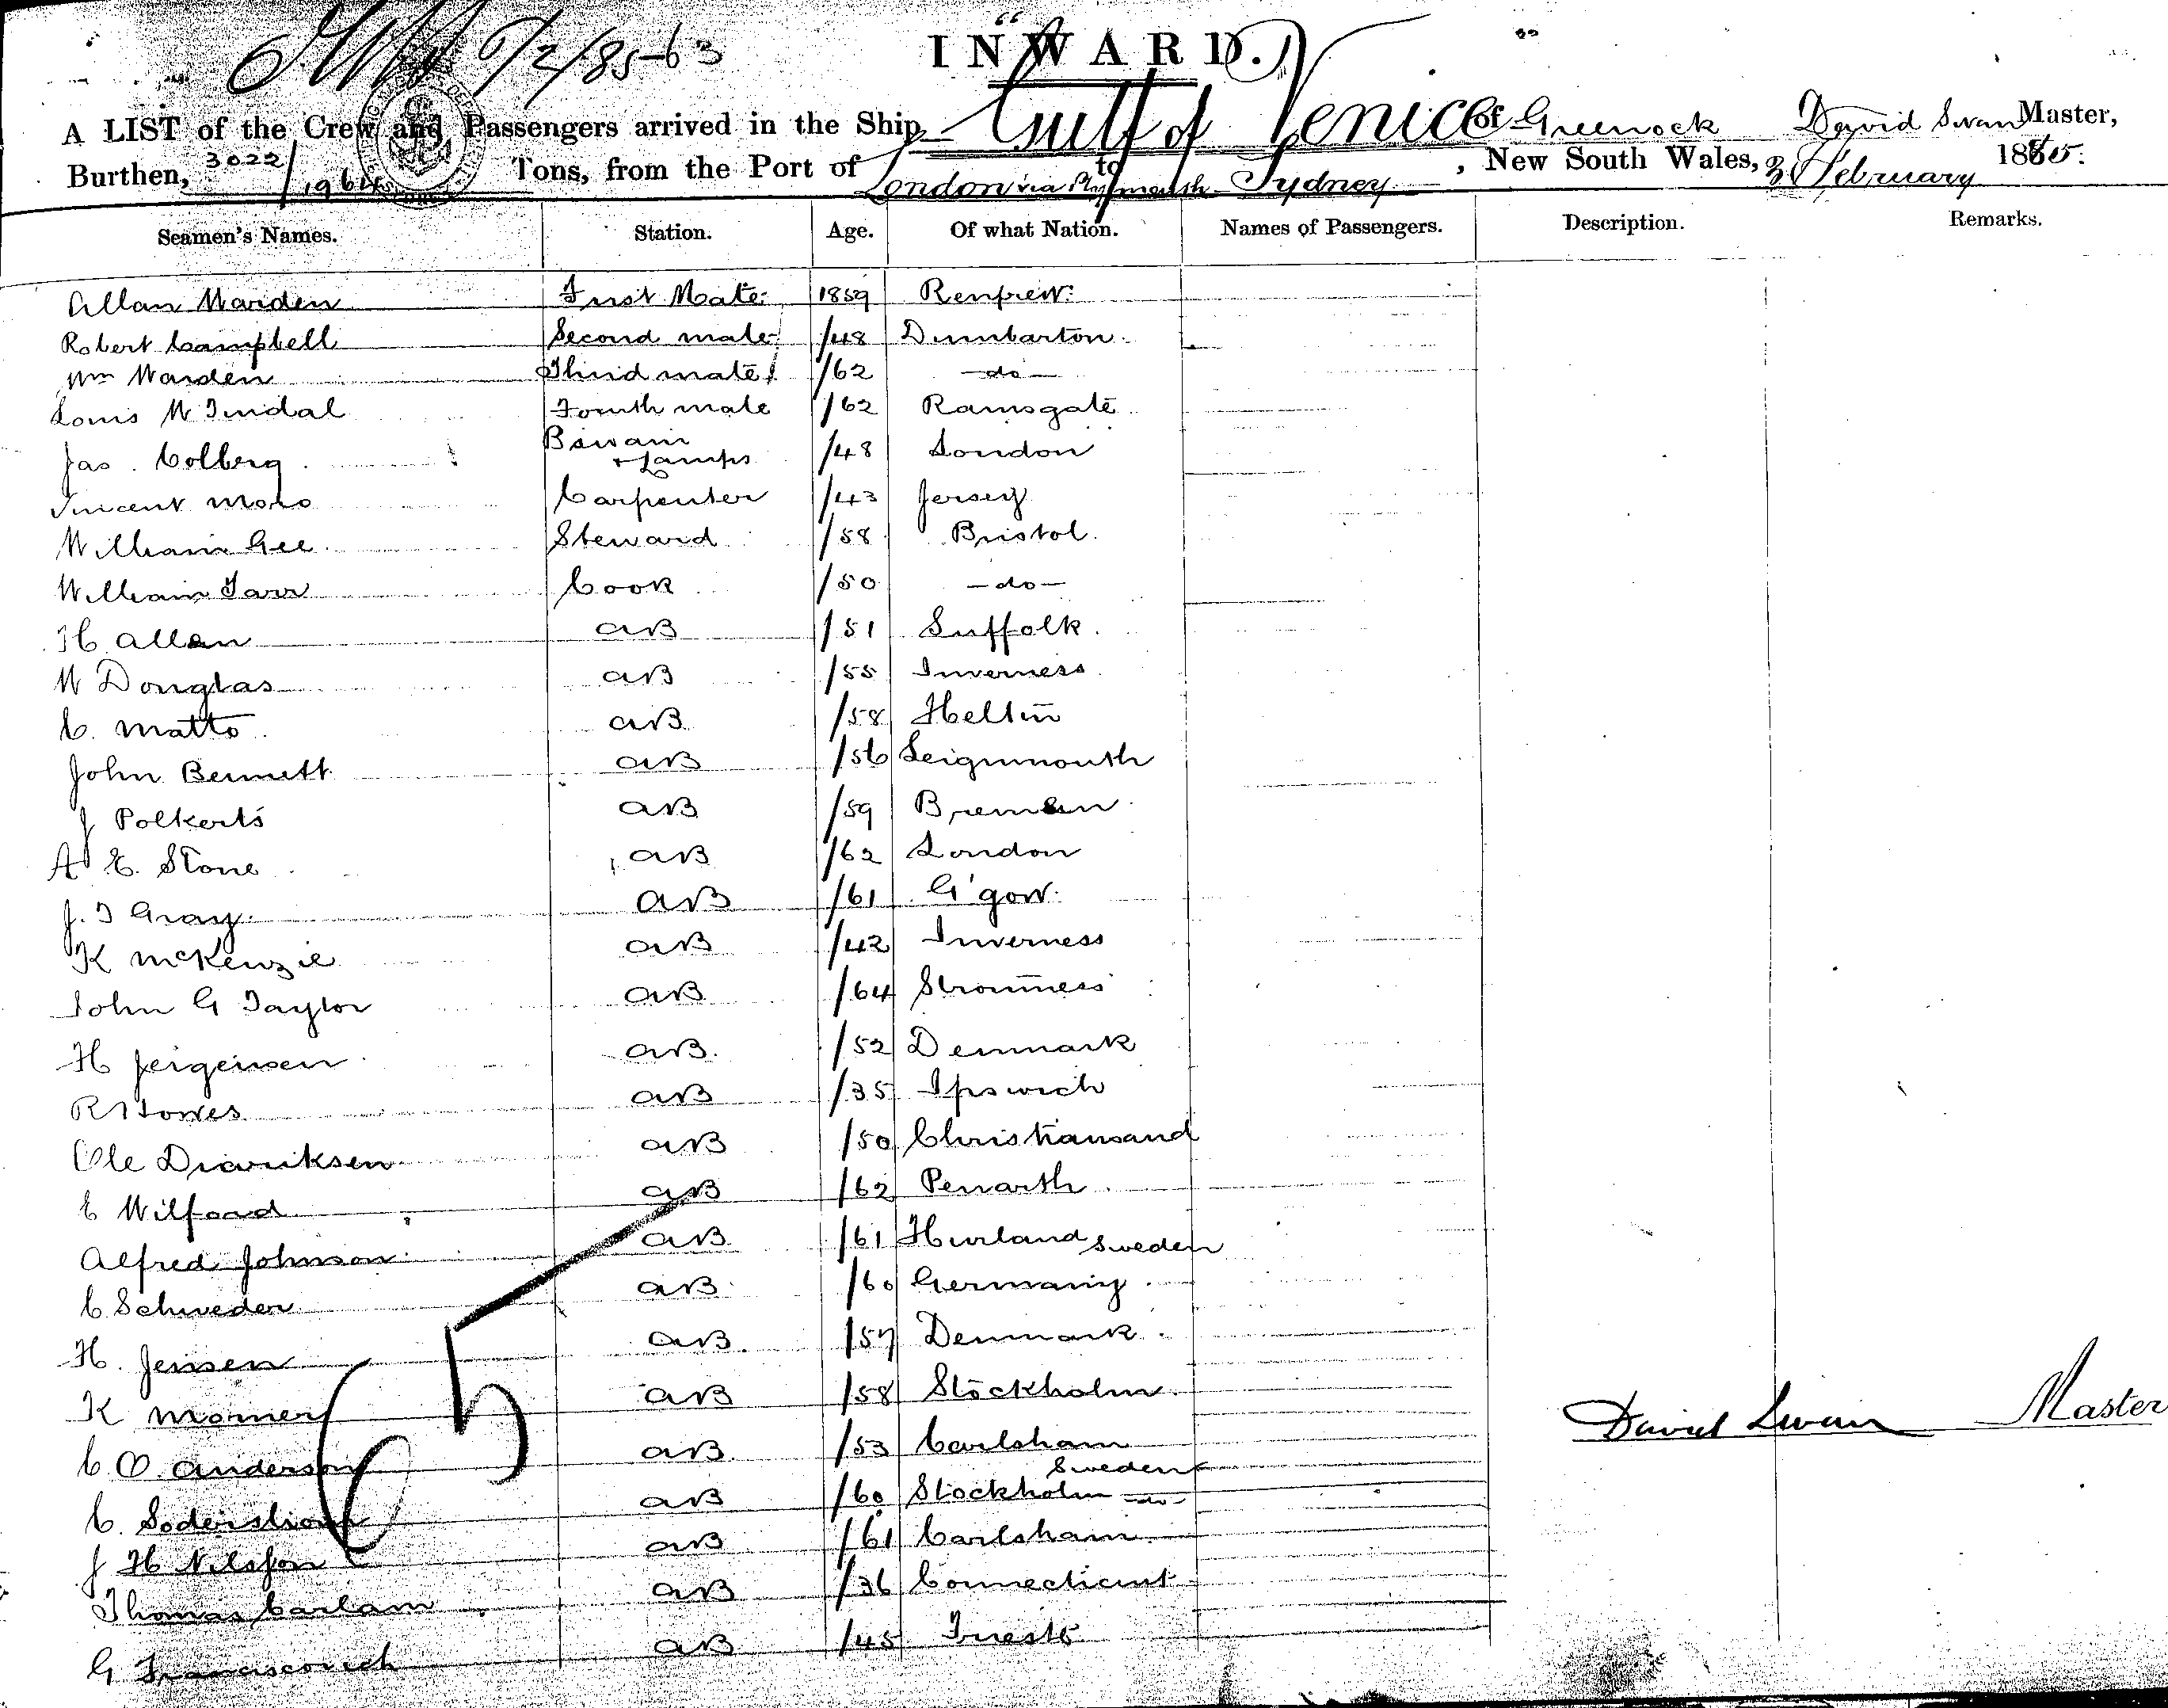 6/2/85-63
INWARD.
A LIST of the Crew and Passengers arrived in the Ship Gulf of Venice of Greenock David Swan Master,
Burthen, 3022/1964 Tons, from the Port of London via Plymouth to Sydney, New South Wales, 3 February 1885.
Seamen's Names. Station. Age. Of what Nation. Names of Passengers. Description. Remarks.
Allan Warden First Mate 1859 Renfrew
Robert Campbell Second mate /48 Dumbarton
Wm Warden Third mate /62 -do-
Louis W Tindal Fourth mate /62 Ramsgate
Jas. Colberg Bswain + Lamps /48 London
Vincent Moro Carpenter /43 Jersey
William Gee Steward /58 Bristol
William Tarr Cook /50 -do-
H Allan AB /51 Suffolk
W Douglas AB /55 Inverness
C. Matto AB /58
John Bennett AB /56 Teignmouth
J Polkerts AB /59 Bremen
A E. Stone AB /62 London
J. T Gray AB /61 G'gow
K McKenzie AB /42 Inverness
John G Taylor AB /64 Stromness
H Jergensen AB /52 Denmark
R Howes AB /35 Ipswich
Ole Diariksen AB /50 Christiansand
E Wilford AB /62 Penarth
Alfred Johnson AB /61 Hurland Sweden
C Schweder AB /60 Germany
H. Jensen AB /57 Denmark
K Morner AB /58 Stockholm
C O Anderson AB /53 Carlsham Sweden
C. Soderstrom AB /60 Stockholm -do-
J H Nilsson AB /61 Carlsham
Thomas Carlam AB /36 Connecticut
G Franciscovich AB /45 Trieste
David Swan Master